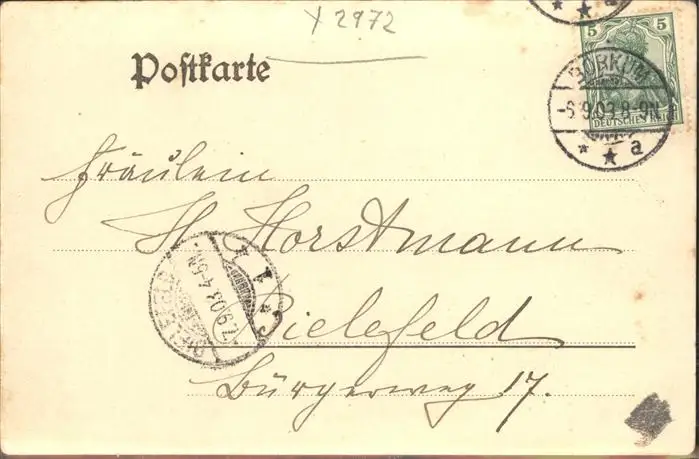 X 2972
Postkarte
5 5
DEUTSCHES REICH
BORKUM
-6.9.03.8-9N
* * a
Fräulein
H. Horstmann
Bielefeld
Bürgerweg 17.
BIELEFELD
7.9.03.4-5N